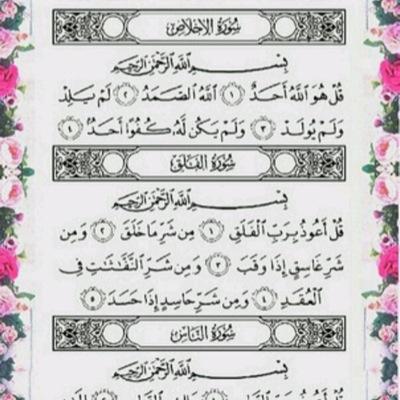 سُورَةُ الإِخْلَاصِ
بِسْمِ اللَّهِ الرَّحْمَٰنِ الرَّحِيمِ
قُلْ هُوَ اللَّهُ أَحَدٌ ١ اللَّهُ الصَّمَدُ ٢ لَمْ يَلِدْ
وَلَمْ يُولَدْ ٣ وَلَمْ يَكُن لَّهُ كُفُوًا أَحَدٌ ٤
سُورَةُ الْفَلَقِ
بِسْمِ اللَّهِ الرَّحْمَٰنِ الرَّحِيمِ
قُلْ أَعُوذُ بِرَبِّ الْفَلَقِ ١ مِن شَرِّ مَا خَلَقَ ٢ وَمِن
شَرِّ غَاسِقٍ إِذَا وَقَبَ ٣ وَمِن شَرِّ النَّفَّاثَاتِ فِي
الْعُقَدِ ٤ وَمِن شَرِّ حَاسِدٍ إِذَا حَسَدَ ٥
سُورَةُ النَّاسِ
بِسْمِ اللَّهِ الرَّحْمَٰنِ الرَّحِيمِ